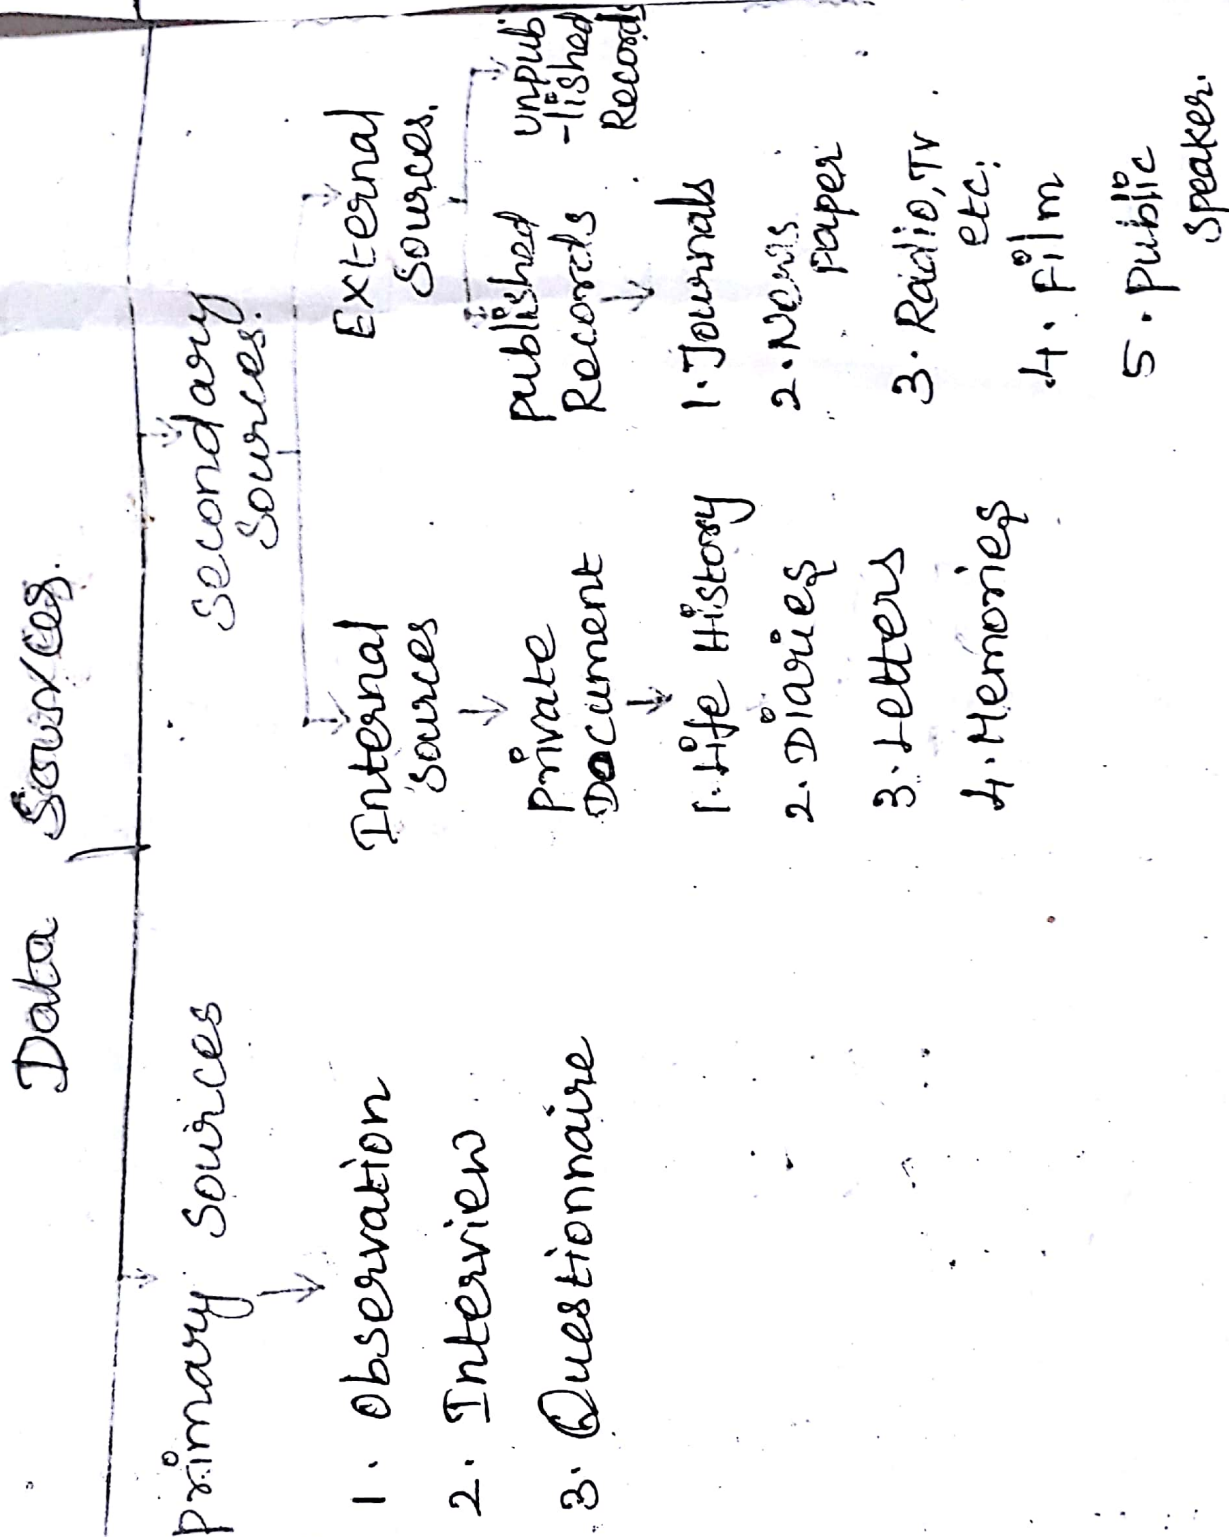 Data Sources.
Primary Sources
1. Observation
2. Interview
3. Questionnaire
Secondary
Sources.
Internal
Sources
Private
Document
1. Life History
2. Diaries
3. Letters
4. Memories
External
Sources.
Published
Records
1. Journals
2. News
Paper
3. Radio, TV
etc.
4. Film
5. Public
Speaker.
Unpub
-lished
Records